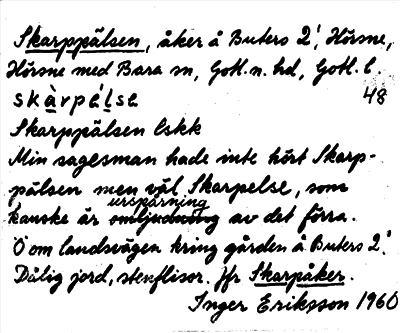 Skarppälsen, åker å Buters 2¹, Hörsne,
Hörsne med Bara sn, Gotl. n. hd, Gotl. l.
skàrpél̨se 48
Skarppälsen Eskk
Min sagesman hade inte hört Skarp-
pälsen men väl Skarpelse, som
ursparning
kanske är omljudning av det förra.
Ö om landsvägen kring gården å Buters 2¹.
Dålig jord, stenflisor. Jfr Skarpåker.
Inger Eriksson 1960